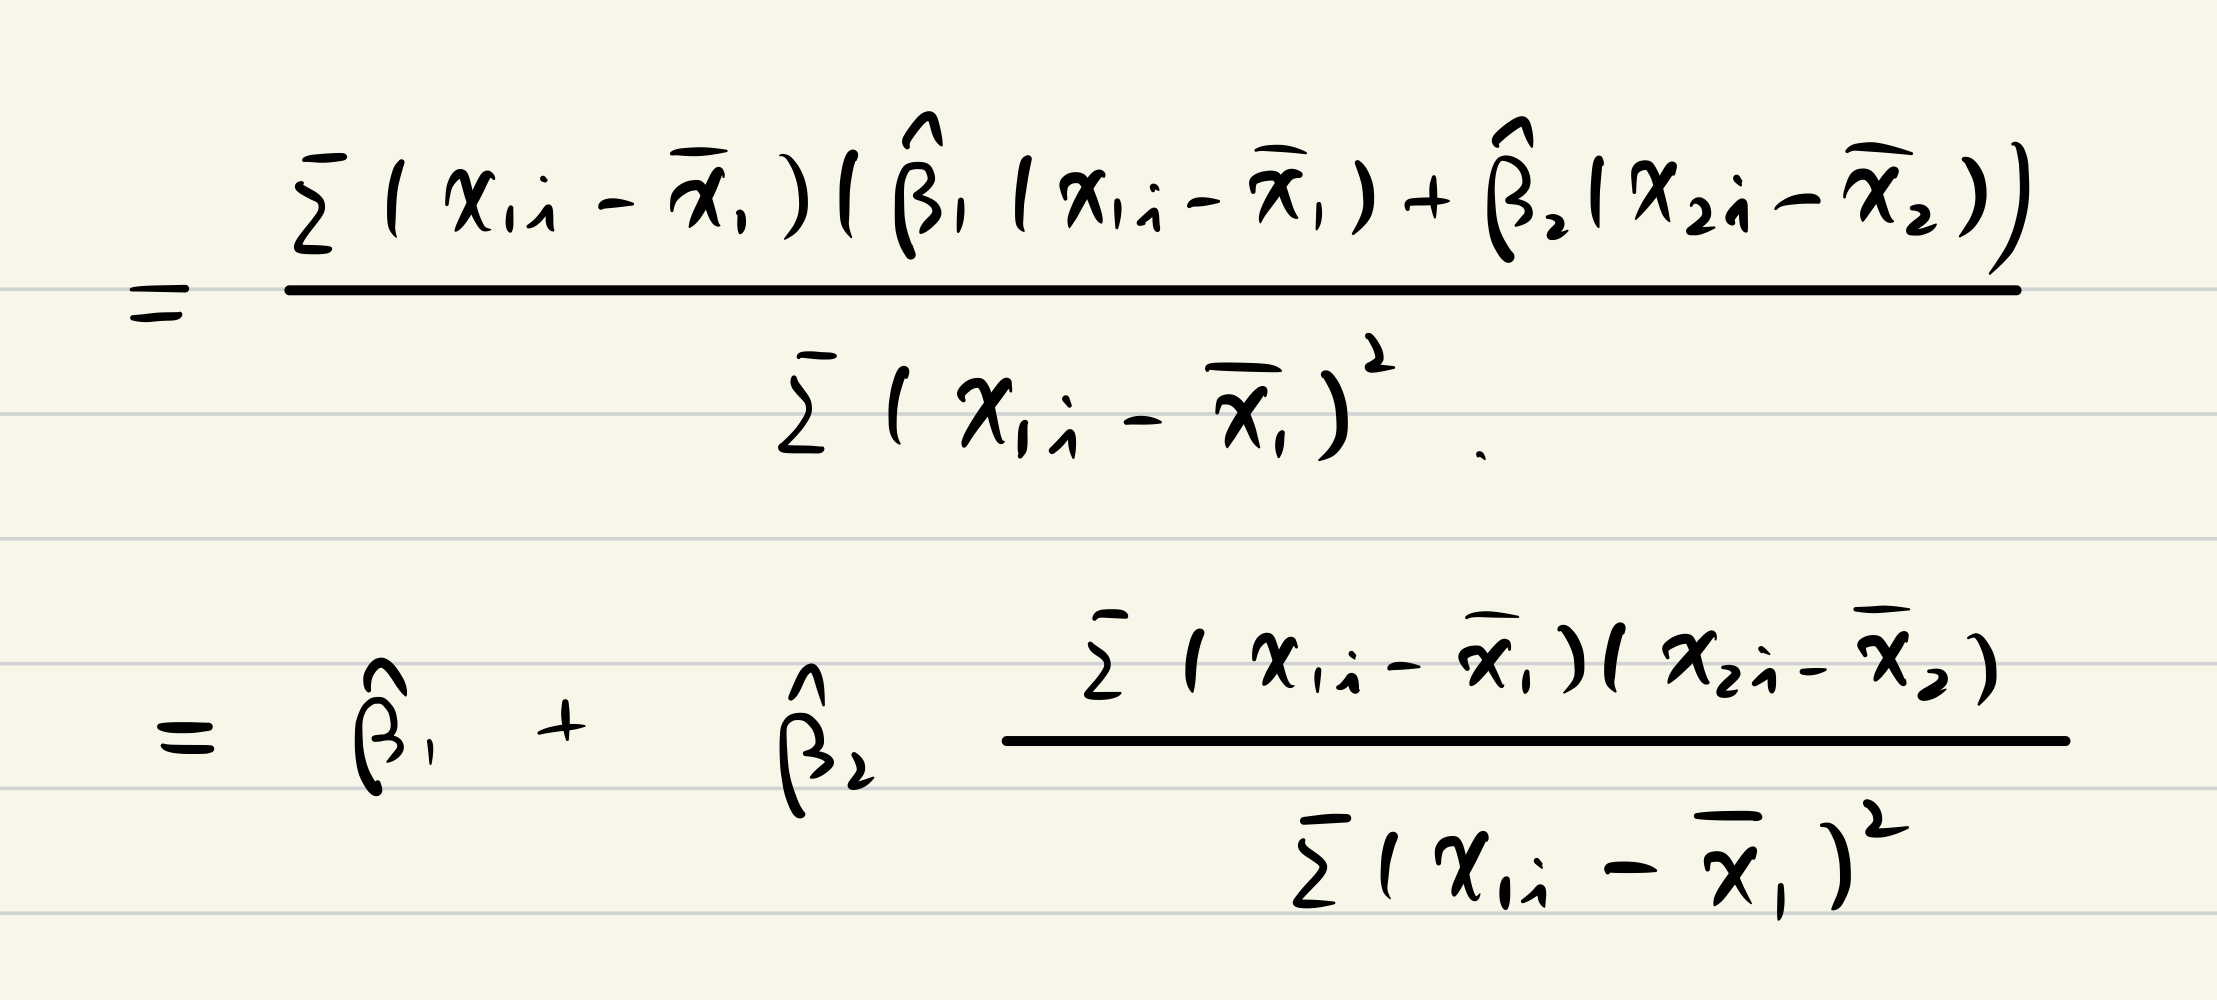 = Σ(x₁ᵢ − x̄₁)(β̂₁(x₁ᵢ − x̄₁) + β̂₂(x₂ᵢ − x̄₂))
Σ(x₁ᵢ − x̄₁)² .
= β̂₁ + β̂₂ Σ(x₁ᵢ − x̄₁)(x₂ᵢ − x̄₂)
Σ(x₁ᵢ − x̄₁)²